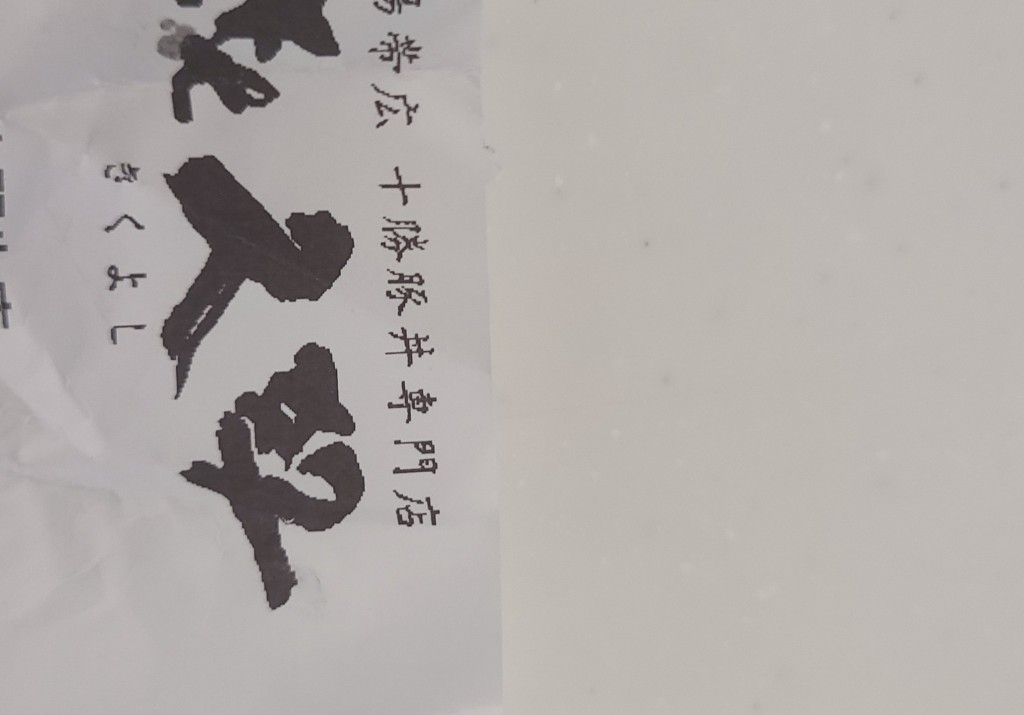 場帯広 十勝豚丼専門店
久好
きくよし